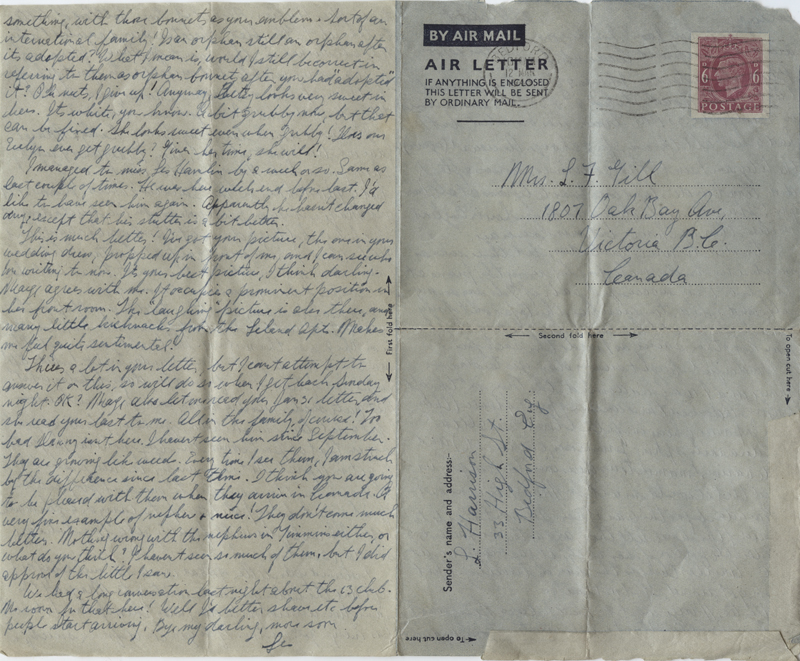 something, with those bonnets as your emblem. Sort of an
international family! Is an orphan still an orphan after
its adopted? What I mean is, would I still be correct in
referring to them as orphan bonnet after you had adopted
it? O.K. nuts, I give up! Anyway, looks very sweet in
hers. Its white, you know. A bit grubby now, but that
can be fixed. She looks sweet even when grubby! Has our
Evelyn ever get grubby? Given her time, she will!
I managed to miss Les Hamlin by a week or so. Same as
last couple of times. He was here weekend before last. I'd
like to have seen him again. Apparently he hasn't changed
any, except that his stutter is a bit better.
This is much better! I've got your picture, the one in your
wedding dress, propped up in front of me, and I can see who
I'm writing to now. It's your best picture, I think darling.
agrees with me. It occupies a prominent position in
her front room. The "laughing" picture is also there, and
many little from the Island Apt. Makes
me feel quite sentimental!
There's a lot in your letter, but I can't attempt to
answer it on this, so will do so when I get back Sunday
night. O.K? also let me read your Jan 31 letter, and
she read your last to me. All in the family, of course! Too
bad isn't here. I haven't seen him since September.
They are growing like weeds. Every time I see them, I am struck
by the difference since last time. I think you are going
to be pleased with them when they arrive in Canada. A
very fine example of nephew & niece! They don't come much
better. Nothing wrong with the nephews in Timmins either, or
what do you think? I haven't seen so much of them, but I did
approve of the little I saw.
We had a long conversation last night about the club.
No room for that here! Well I'd better shave etc before
people start arriving. Bye my darling, more soon
Les
First fold here
BY AIR MAIL
AIR LETTER
IF ANYTHING IS ENCLOSED
THIS LETTER WILL BE SENT
BY ORDINARY MAIL.
BEDFORD
6D
6D
POSTAGE
Mrs. L. F. Gill
1807 Oak Bay Ave,
Victoria B.C.
Canada
Second fold here
To open cut here
Sender's name and address:-
L. Harrison
33 High St.
Bedford Eng
To open cut here